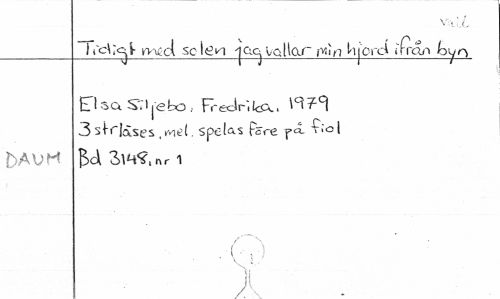 vall
Tidigt med solen jag vallar min hjord ifrån byn
Elsa Siljebo, Fredrika, 1979
3 str läses, mel. spelas före på fiol
DAUM Bd 3148, nr 1